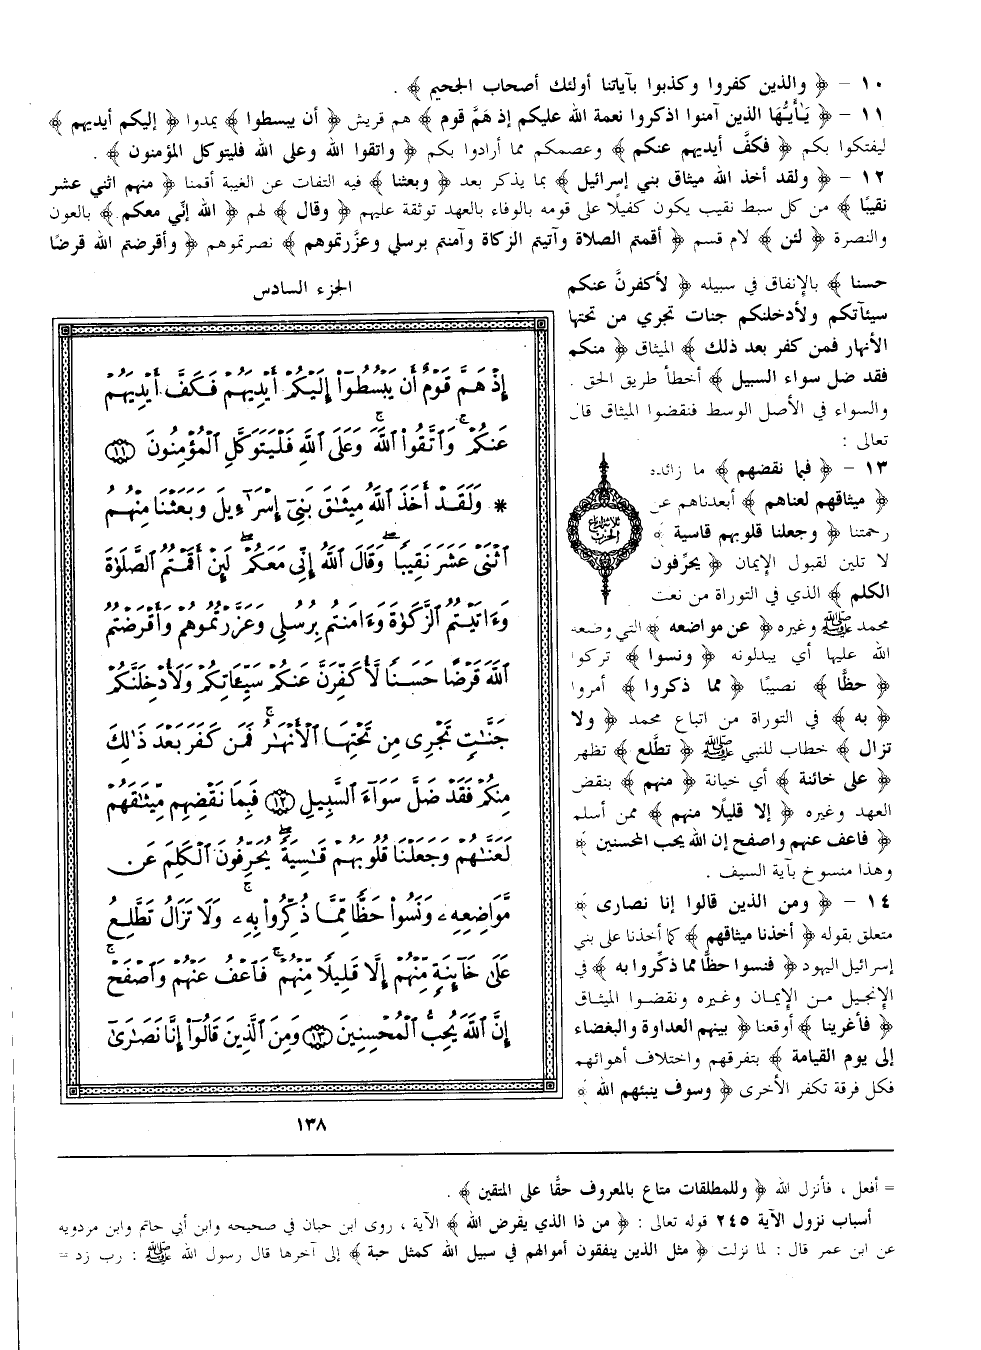 ١٠ – ﴿ والذين كفروا وكذبوا بآياتنا أولئك أصحاب الجحيم ﴾ .
١١ – ﴿ يَـٰأَيُّهَا الذين آمنوا اذكروا نعمة الله عليكم إذ هَمَّ قوم ﴾ هم قريش ﴿ أن يبسطوا ﴾ يمدوا ﴿ إليكم أيديهم ﴾
ليفتكوا بكم ﴿ فكفَّ أيديهم عنكم ﴾ وعصمكم مما أرادوا بكم ﴿ واتقوا الله وعلى الله فليتوكل المؤمنون ﴾ .
١٢ – ﴿ ولقد أخذ الله ميثاق بني إسرائيل ﴾ بما يذكر بعد ﴿ وبعثنا ﴾ فيه التفات عن الغيبة أقمنا ﴿ منهم اثني عشر
نقيبًا ﴾ من كل سبط نقيب يكون كفيلًا على قومه بالوفاء بالعهد توثقة عليهم ﴿ وقال ﴾ لهم ﴿ الله إنّي معكم ﴾ بالعون
والنصرة ﴿ لئن ﴾ لام قسم ﴿ أقمتم الصلاة وآتيتم الزكاة وآمنتم برسلي وعزَّرتموهم ﴾ نصرتموهم ﴿ وأقرضتم الله قرضًا
حسنا ﴾ بالإنفاق في سبيله ﴿ لأكفرنَّ عنكم
سيئآتكم ولأدخلنكم جنات تجري من تحتها
الأنهار فمن كفر بعد ذلك ﴾ الميثاق ﴿ منكم
فقد ضل سواء السبيل ﴾ أخطأ طريق الحق .
والسواء في الأصل الوسط فنقضوا الميثاق قال
تعالى :
١٣ – ﴿ فبما نقضهم ﴾ ما زائدة
﴿ ميثاقهم لعناهم ﴾ أبعدناهم عن
رحمتنا ﴿ وجعلنا قلوبهم قاسية ﴾
لا تلين لقبول الإيمان ﴿ يحرِّفون
الكلم ﴾ الذي في التوراة من نعت
محمد ﷺ وغيره ﴿ عن مواضعه ﴾ التي وضعه
الله عليها أي يبدلونه ﴿ ونسوا ﴾ تركوا
﴿ حظًّا ﴾ نصيبًا ﴿ مما ذكروا ﴾ أمروا
﴿ به ﴾ في التوراة من اتباع محمد ﴿ ولا
تزال ﴾ خطاب للنبي ﷺ ﴿ تطَّلع ﴾ تظهر
﴿ على خائنة ﴾ أي خيانة ﴿ منهم ﴾ بنقض
العهد وغيره ﴿ إلا قليلًا منهم ﴾ ممن أسلم
﴿ فاعف عنهم واصفح إن الله يحب المحسنين ﴾
وهذا منسوخ بآية السيف .
١٤ – ﴿ ومن الذين قالوا إنا نصارى ﴾
متعلق بقوله ﴿ أخذنا ميثاقهم ﴾ كما أخذنا على بني
إسرائيل اليهود ﴿ فنسوا حظًّا مما ذكِّروا به ﴾ في
الإنجيل من الإيمان وغيره ونقضوا الميثاق
﴿ فأغرينا ﴾ أوقعنا ﴿ بينهم العداوة والبغضاء
إلى يوم القيامة ﴾ بتفرقهم واختلاف أهوائهم
فكل فرقة تكفر الأخرى ﴿ وسوف ينبئهم الله ﴾
الجزء السادس
إِذْ هَمَّ قَوْمٌ أَن يَبْسُطُوٓا۟ إِلَيْكُمْ أَيْدِيَهُمْ فَكَفَّ أَيْدِيَهُمْ
عَنكُمْ ۖ وَٱتَّقُوا۟ ٱللَّهَ ۚ وَعَلَى ٱللَّهِ فَلْيَتَوَكَّلِ ٱلْمُؤْمِنُونَ ١١
* وَلَقَدْ أَخَذَ ٱللَّهُ مِيثَـٰقَ بَنِىٓ إِسْرَٰٓءِيلَ وَبَعَثْنَا مِنْهُمُ
ٱثْنَىْ عَشَرَ نَقِيبًا ۖ وَقَالَ ٱللَّهُ إِنِّى مَعَكُمْ ۖ لَئِنْ أَقَمْتُمُ ٱلصَّلَوٰةَ
وَءَاتَيْتُمُ ٱلزَّكَوٰةَ وَءَامَنتُم بِرُسُلِى وَعَزَّرْتُمُوهُمْ وَأَقْرَضْتُمُ
ٱللَّهَ قَرْضًا حَسَنًا لَّأُكَفِّرَنَّ عَنكُمْ سَيِّـَٔاتِكُمْ وَلَأُدْخِلَنَّكُمْ
جَنَّـٰتٍ تَجْرِى مِن تَحْتِهَا ٱلْأَنْهَـٰرُ ۚ فَمَن كَفَرَ بَعْدَ ذَٰلِكَ
مِنكُمْ فَقَدْ ضَلَّ سَوَآءَ ٱلسَّبِيلِ ١٢ فَبِمَا نَقْضِهِم مِّيثَـٰقَهُمْ
لَعَنَّـٰهُمْ وَجَعَلْنَا قُلُوبَهُمْ قَـٰسِيَةً ۖ يُحَرِّفُونَ ٱلْكَلِمَ عَن
مَّوَاضِعِهِۦ ۙ وَنَسُوا۟ حَظًّا مِّمَّا ذُكِّرُوا۟ بِهِۦ ۚ وَلَا تَزَالُ تَطَّلِعُ
عَلَىٰ خَآئِنَةٍ مِّنْهُمْ إِلَّا قَلِيلًا مِّنْهُمْ ۖ فَٱعْفُ عَنْهُمْ وَٱصْفَحْ ۚ
إِنَّ ٱللَّهَ يُحِبُّ ٱلْمُحْسِنِينَ ١٣ وَمِنَ ٱلَّذِينَ قَالُوٓا۟ إِنَّا نَصَـٰرَىٰٓ
١٣٨
= أفعل ، فأنزل الله ﴿ وللمطلقات متاع بالمعروف حقًّا على المتقين ﴾ .
أسباب نزول الآية ٢٤٥ قوله تعالى : ﴿ من ذا الذي يقرض الله ﴾ الآية ، روى ابن حبان في صحيحه وابن أبي حاتم وابن مردويه
عن ابن عمر قال : لما نزلت ﴿ مثل الذين ينفقون أموالهم في سبيل الله كمثل حبة ﴾ إلى آخرها قال رسول الله ﷺ : رب زد =